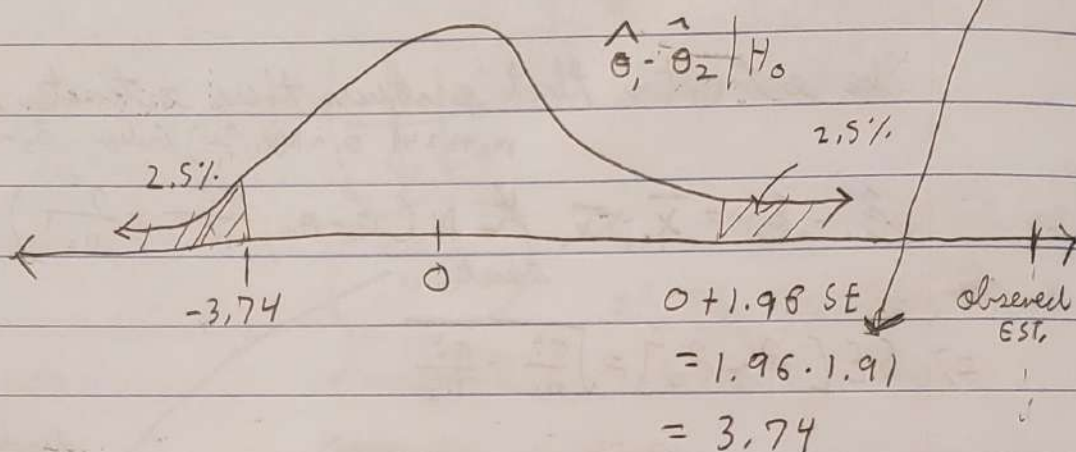 θ̂₁-θ̂₂|H₀
2.5%
2.5%
-3.74
0
0+1.96 SE
= 1.96 · 1.91
= 3.74
obsered
EST.